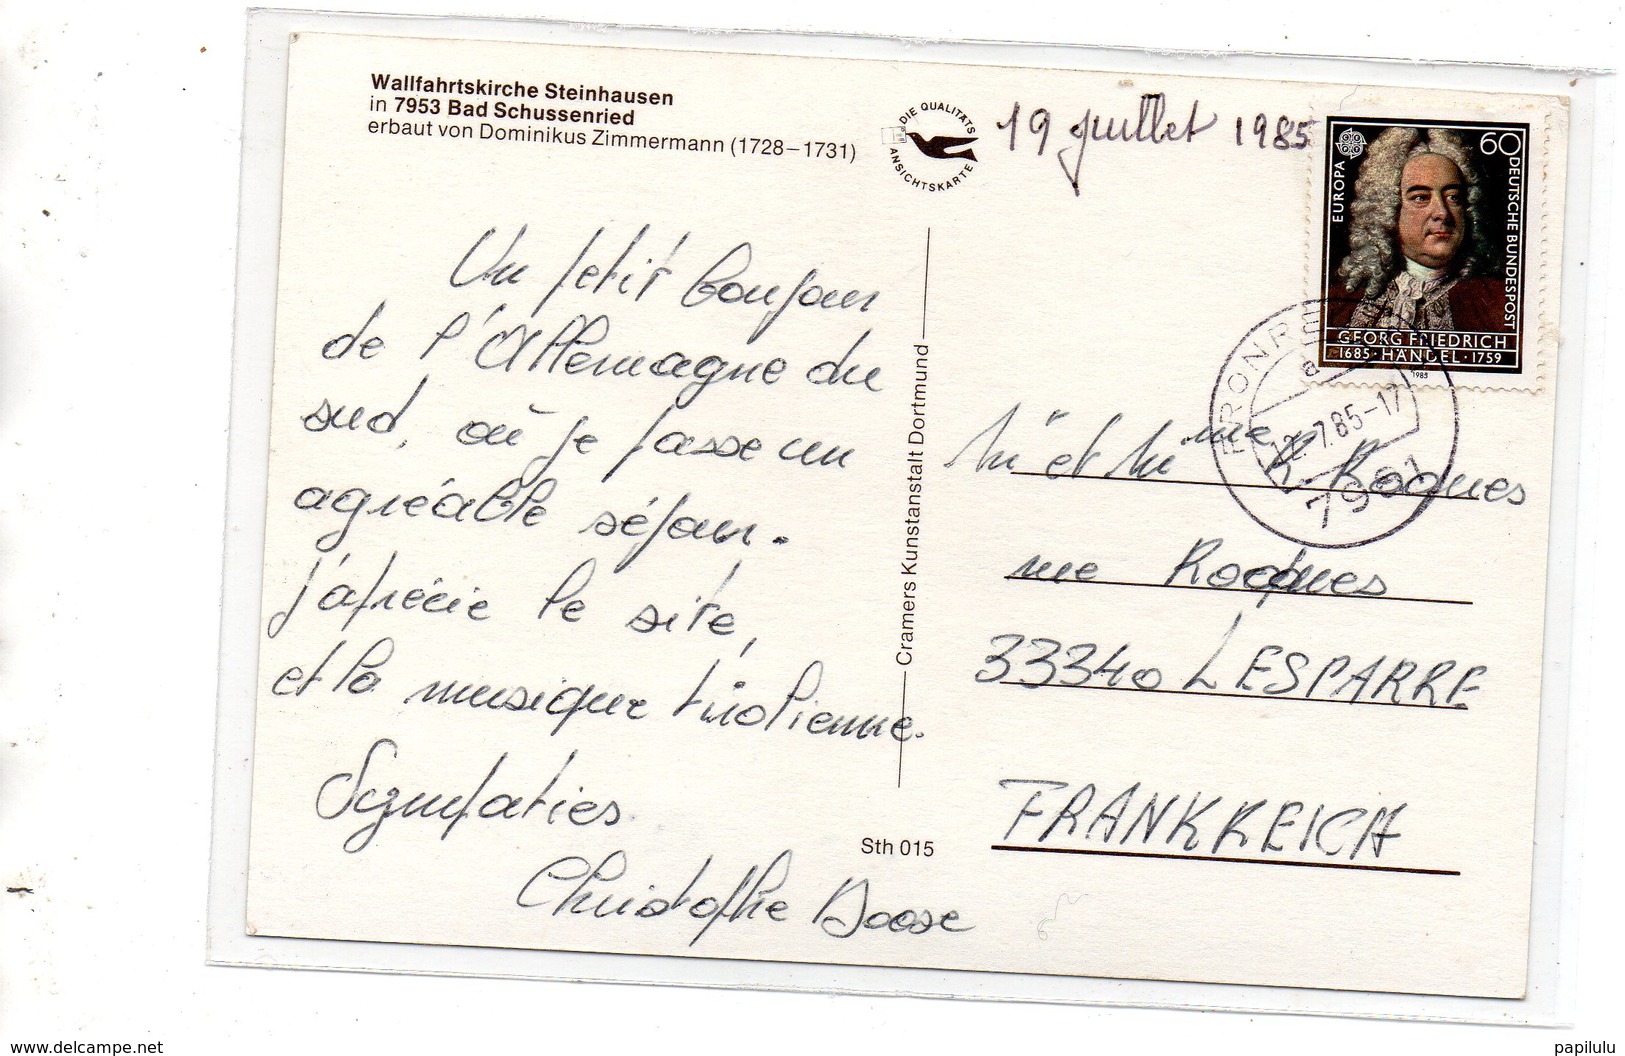 Wallfahrtskirche Steinhausen
in 7953 Bad Schussenried
erbaut von Dominikus Zimmermann (1728–1731)
DIE QUALITÄTS
ANSICHTSKARTE
19 juillet 1985
EUROPA
60
DEUTSCHE BUNDESPOST
GEORG FRIEDRICH
1685 · HÄNDEL · 1759
1985
Un petit bonjour
de l'Allemagne du
sud, où je passe un
agréable séjour.
j'aprécie le site,
et la musique tirolienne.
Sympaties
Christophe Doose
Cramers Kunstanstalt Dortmund
Sth 015
7.85-17
7981
Mr et Mme R Roques
rue
33340 LESPARRE
FRANKREICH
www.delcampe.net
papilulu